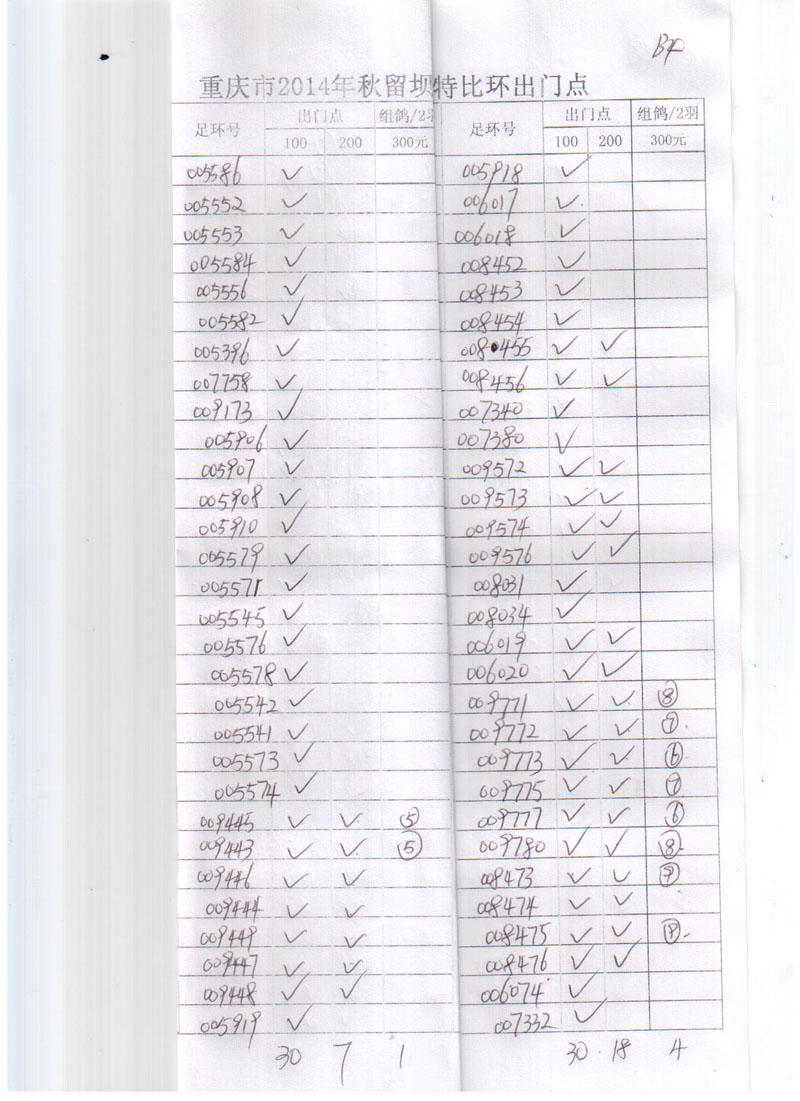 B
重庆市2014年秋留坝特比环出门点
足环号 出门点 组鸽/2羽 足环号 出门点 组鸽/2羽
100 200 300元 100 200 300元
005586 ✓ 005918 ✓
005552 ✓ 006017 ✓
005553 ✓ 006018 ✓
005584 ✓ 008452 ✓
005556 ✓ 008453 ✓
005582 ✓ 008454 ✓
005396 ✓ 008455 ✓ ✓
007758 ✓ 008456 ✓ ✓
009173 ✓ 007340 ✓
005906 ✓ 007380 ✓
005907 ✓ 009572 ✓ ✓
005908 ✓ 009573 ✓ ✓
005910 ✓ 009574 ✓ ✓
005579 ✓ 009576 ✓ ✓
005571 ✓ 008031 ✓
005545 ✓ 008034 ✓
005576 ✓ 006019 ✓ ✓
005578 ✓ 006020 ✓ ✓
005542 ✓ 009771 ✓ ✓ ⑧
005541 ✓ 009772 ✓ ✓ ⑦
005573 ✓ 009773 ✓ ✓ ⑥
005574 ✓ 009775 ✓ ✓ ⑦
009445 ✓ ✓ ⑤ 009777 ✓ ✓ ⑥
009443 ✓ ✓ ⑤ 009780 ✓ ✓ ⑧
009446 ✓ ✓ 008473 ✓ ✓ ⑨
009444 ✓ ✓ 008474 ✓ ✓
009449 ✓ ✓ 008475 ✓ ✓
009447 ✓ ✓ 008476 ✓ ✓
009448 ✓ ✓ 006074 ✓
005919 ✓ 007332 ✓
30 7 1 30 18 4